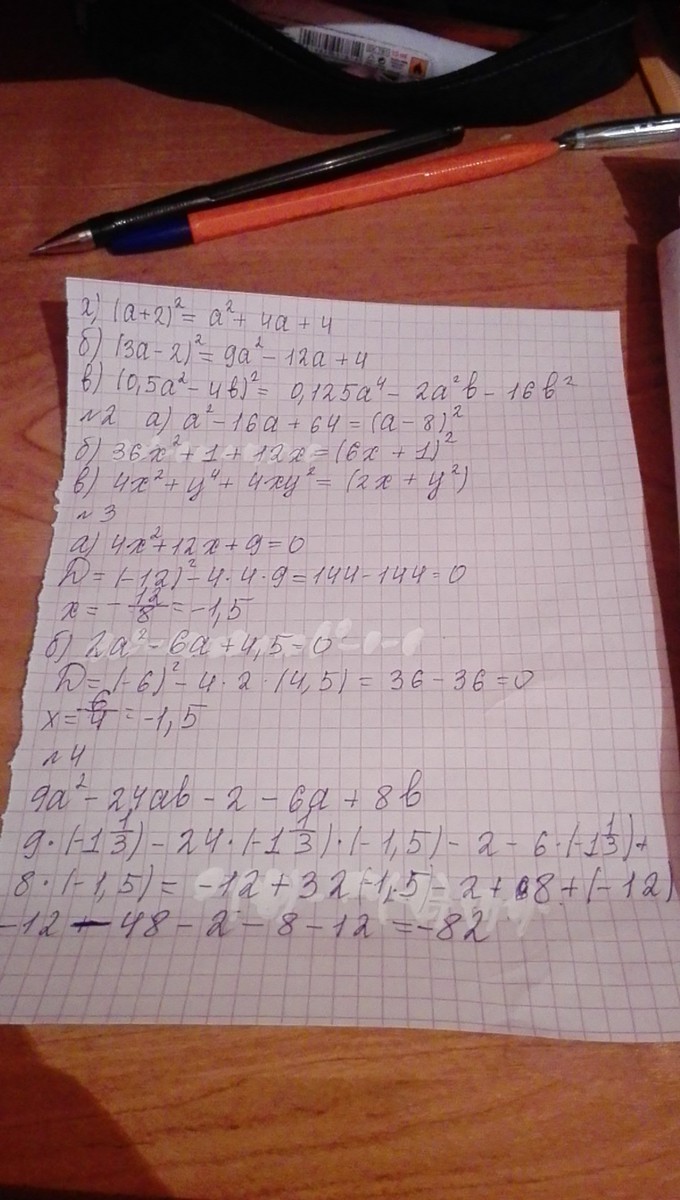 а) (a+2)² = a² + 4a + 4
б) (3a-2)² = 9a² - 12a + 4
в) (0,5a² - 4в)² = 0,125a⁴ - 2a²в - 16в²
№2 а) a² - 16a + 64 = (a - 8)²
б) 36x² + 1 + 12x = (6x + 1)²
в) 4x² + y⁴ + 4xy² = (2x + y²)
№3
а) 4x² + 12x + 9 = 0
D = (-12)² - 4·4·9 = 144 - 144 = 0
x = -12/8 = -1,5
б) 2a² - 6a + 4,5 = 0
D = (-6)² - 4·2·(4,5) = 36 - 36 = 0
x = 6/4 = -1,5
№4
9a² - 24ab - 2 - 6a + 8b
9·(-1 1/3) - 24·(-1 1/3)·(-1,5) - 2 - 6·(-1 1/3) +
8·(-1,5) = -12 + 32(-1,5 - 2 + 8 + (-12)
-12 - 48 - 2 - 8 - 12 = -82